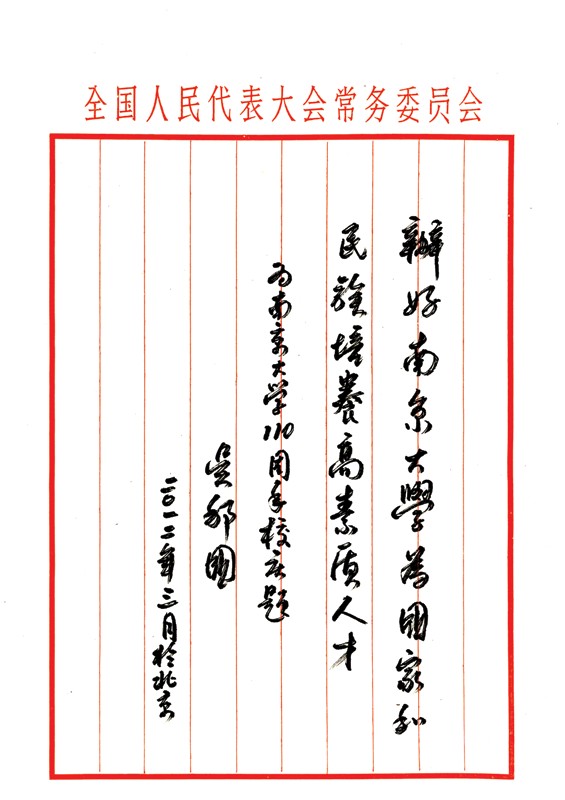 全国人民代表大会常务委员会
辦好南京大學為國家和
民族培養高素质人才
为南京大学110周年校庆题
吴邦國
二〇一二年三月於北京